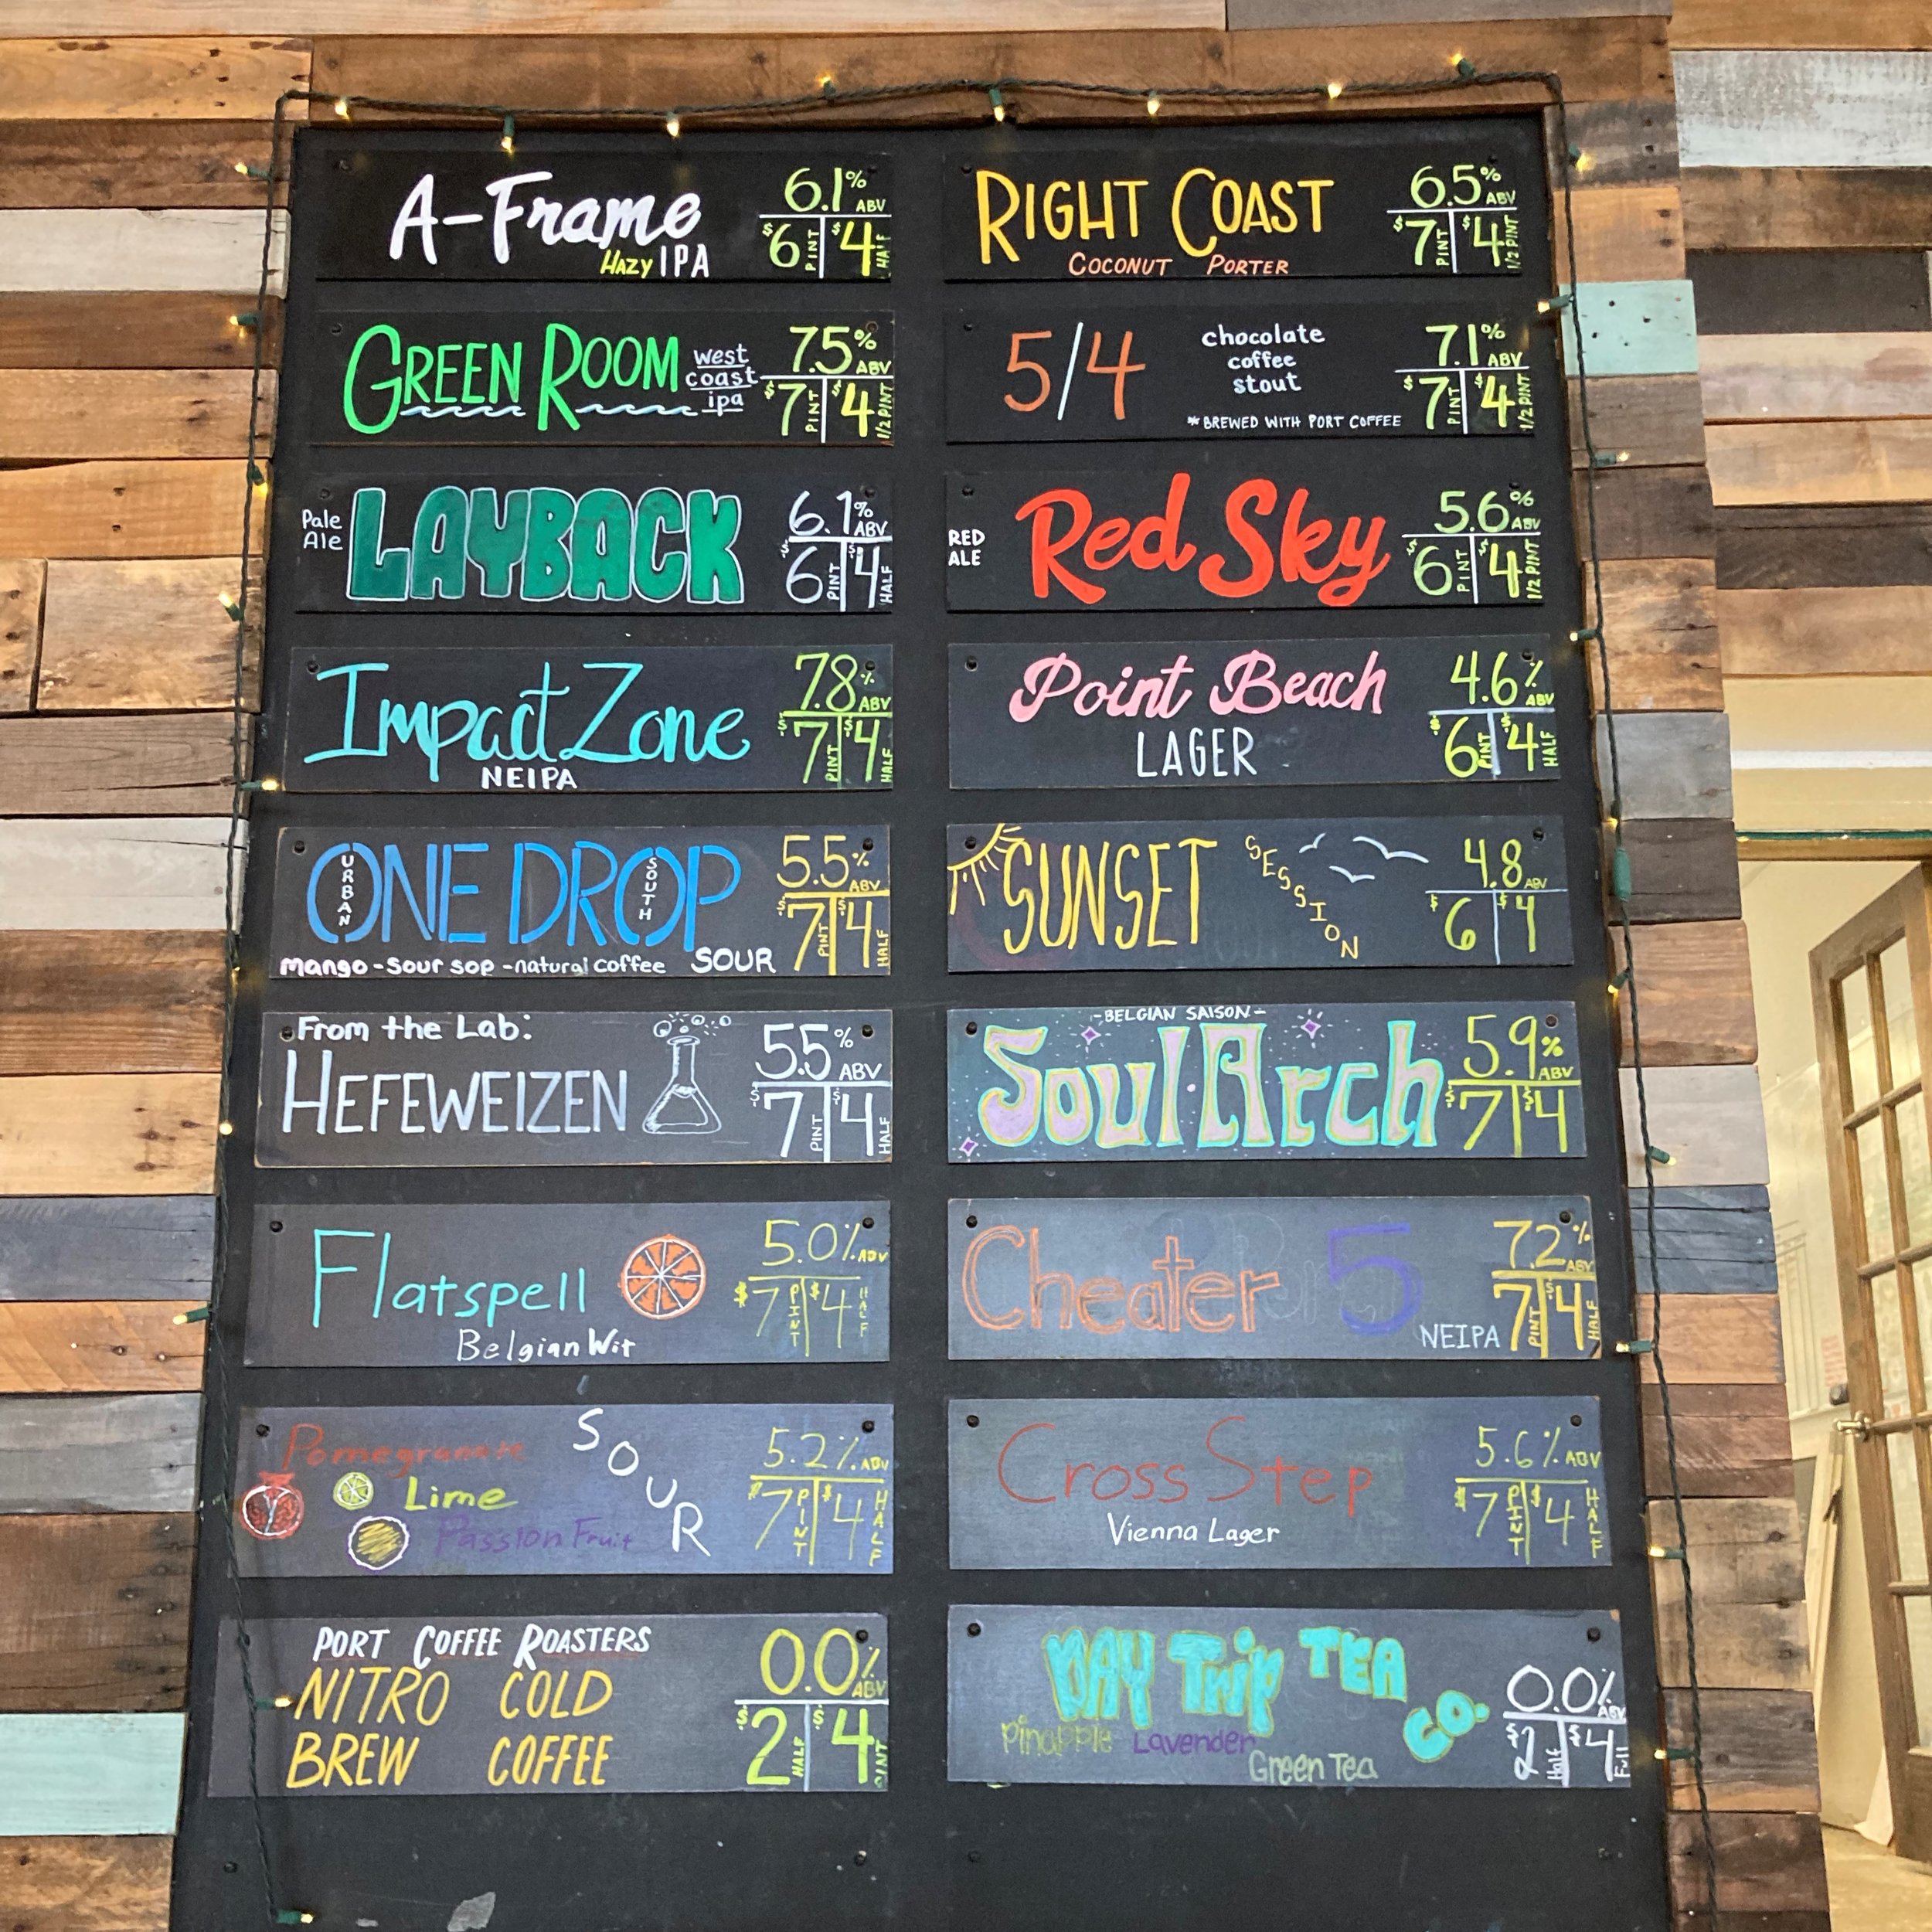 A-Frame
Hazy IPA
6.1% ABV
$6 PINT $4 HALF
GREEN ROOM
west coast ipa
7.5% ABV
$7 PINT $4 1/2 PINT
Pale Ale
LAYBACK
6.1% ABV
$6 PINT $4 HALF
Impact Zone
NEIPA
7.8% ABV
$7 PINT $4 HALF
ONE DROP
URBAN
SOUTH
mango - sour sop - natural coffee SOUR
5.5% ABV
$7 PINT $4 HALF
From the Lab:
HEFEWEIZEN
5.5% ABV
$7 PINT $4 HALF
Flatspell
Belgian Wit
5.0% ABV
$7 PINT $4 HALF
Pomegranate
Lime
Passion Fruit
SOUR
5.2% ABV
$7 PINT $4 HALF
PORT COFFEE ROASTERS
NITRO COLD
BREW COFFEE
0.0% ABV
$2 HALF $4 PINT
RIGHT COAST
COCONUT PORTER
6.5% ABV
$7 PINT $4 1/2 PINT
5/4
chocolate
coffee
stout
*BREWED WITH PORT COFFEE
7.1% ABV
$7 PINT $4 1/2 PINT
RED ALE
Red Sky
5.6% ABV
$6 PINT $4 1/2 PINT
Point Beach
LAGER
4.6% ABV
$6 PINT $4 HALF
SUNSET
SESSION
4.8 ABV
$6 $4
-BELGIAN SAISON-
Soul Arch
5.9% ABV
$7 $4
Cheater 5
NEIPA
7.2% ABV
7 PINT $4 HALF
Cross Step
Vienna Lager
5.6% ABV
$7 PINT $4 HALF
DAY Trip TEA CO.
Pinapple Lavender
Green Tea
0.0% ABV
$2 Half $4 Full